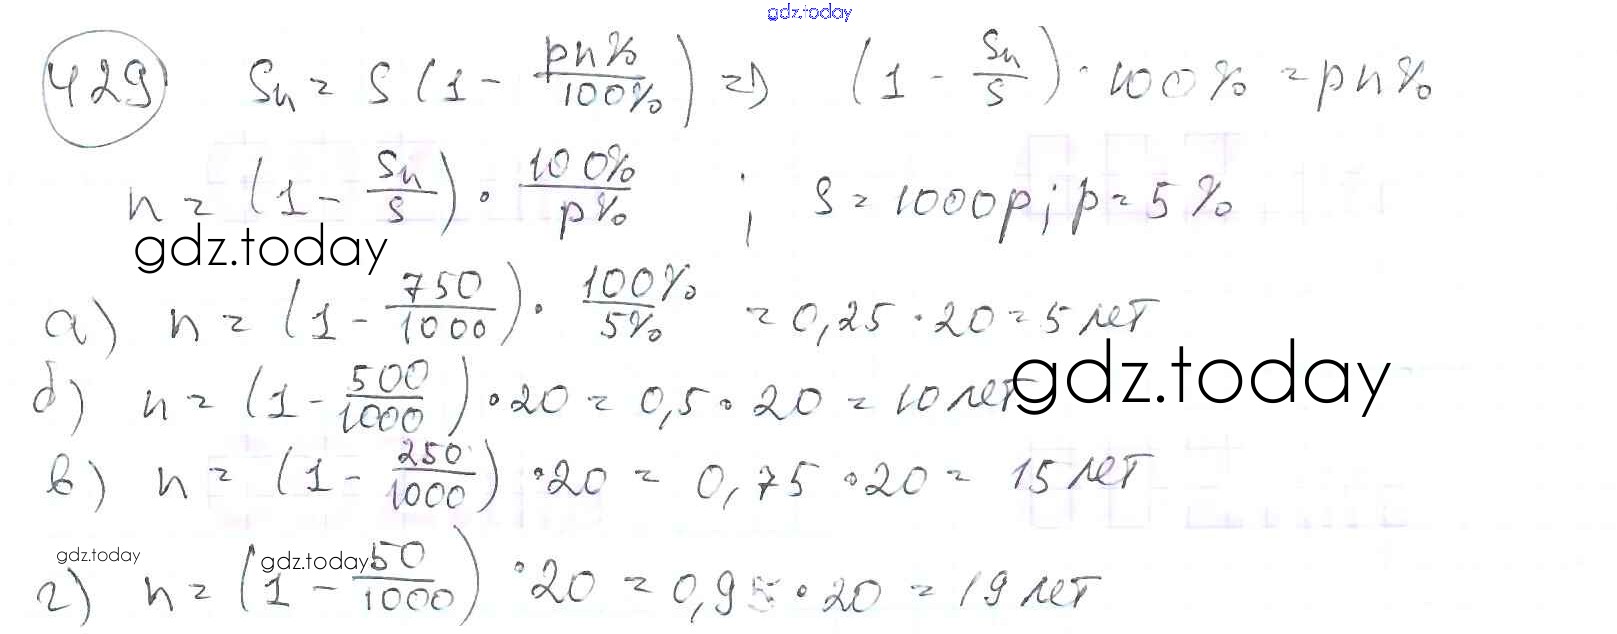 gdz.today
429 Sn = S (1 - pn%/100%) => (1 - Sn/S) · 100% = pn%
n = (1 - Sn/S) · 100%/p% ; S = 1000р; p = 5%
gdz.today
а) n = (1 - 750/1000) · 100%/5% = 0,25 · 20 = 5 лет
gdz.today
б) n = (1 - 500/1000) · 20 = 0,5 · 20 = 10 лет
в) n = (1 - 250/1000) · 20 = 0,75 · 20 = 15 лет
gdz.today gdz.today
г) n = (1 - 50/1000) · 20 = 0,95 · 20 = 19 лет